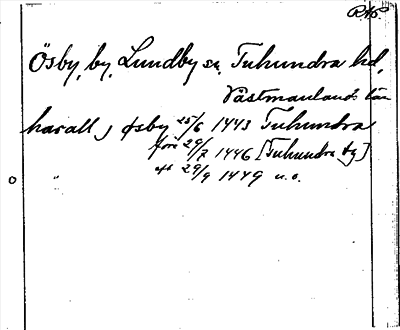 R.A.P.
Ösby, by, Lundby sn, Tuhundra hd,
Västmanlands län
harall j Øsby 25/6 1443 Tuhundra
före 29/7 1446 [Tuhundra tg]
eft 29/9 1449 u.o.